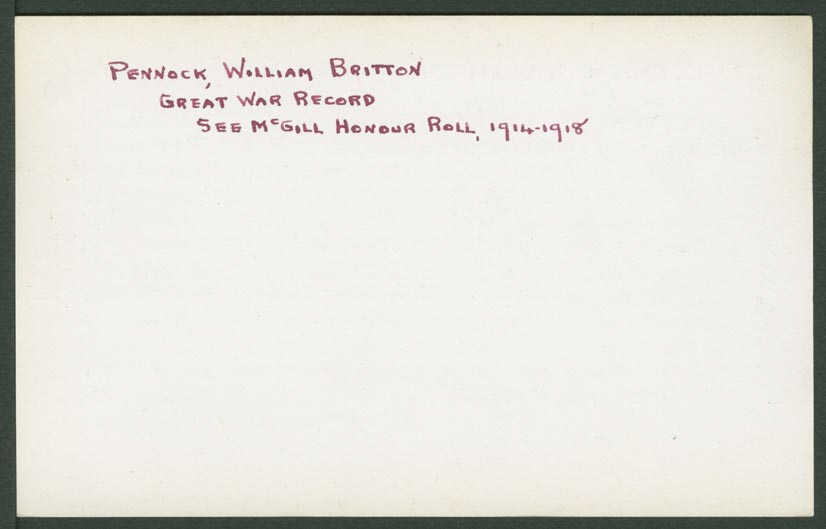 PENNOCK, WILLIAM BRITTON
GREAT WAR RECORD
SEE McGILL HONOUR ROLL, 1914-1918